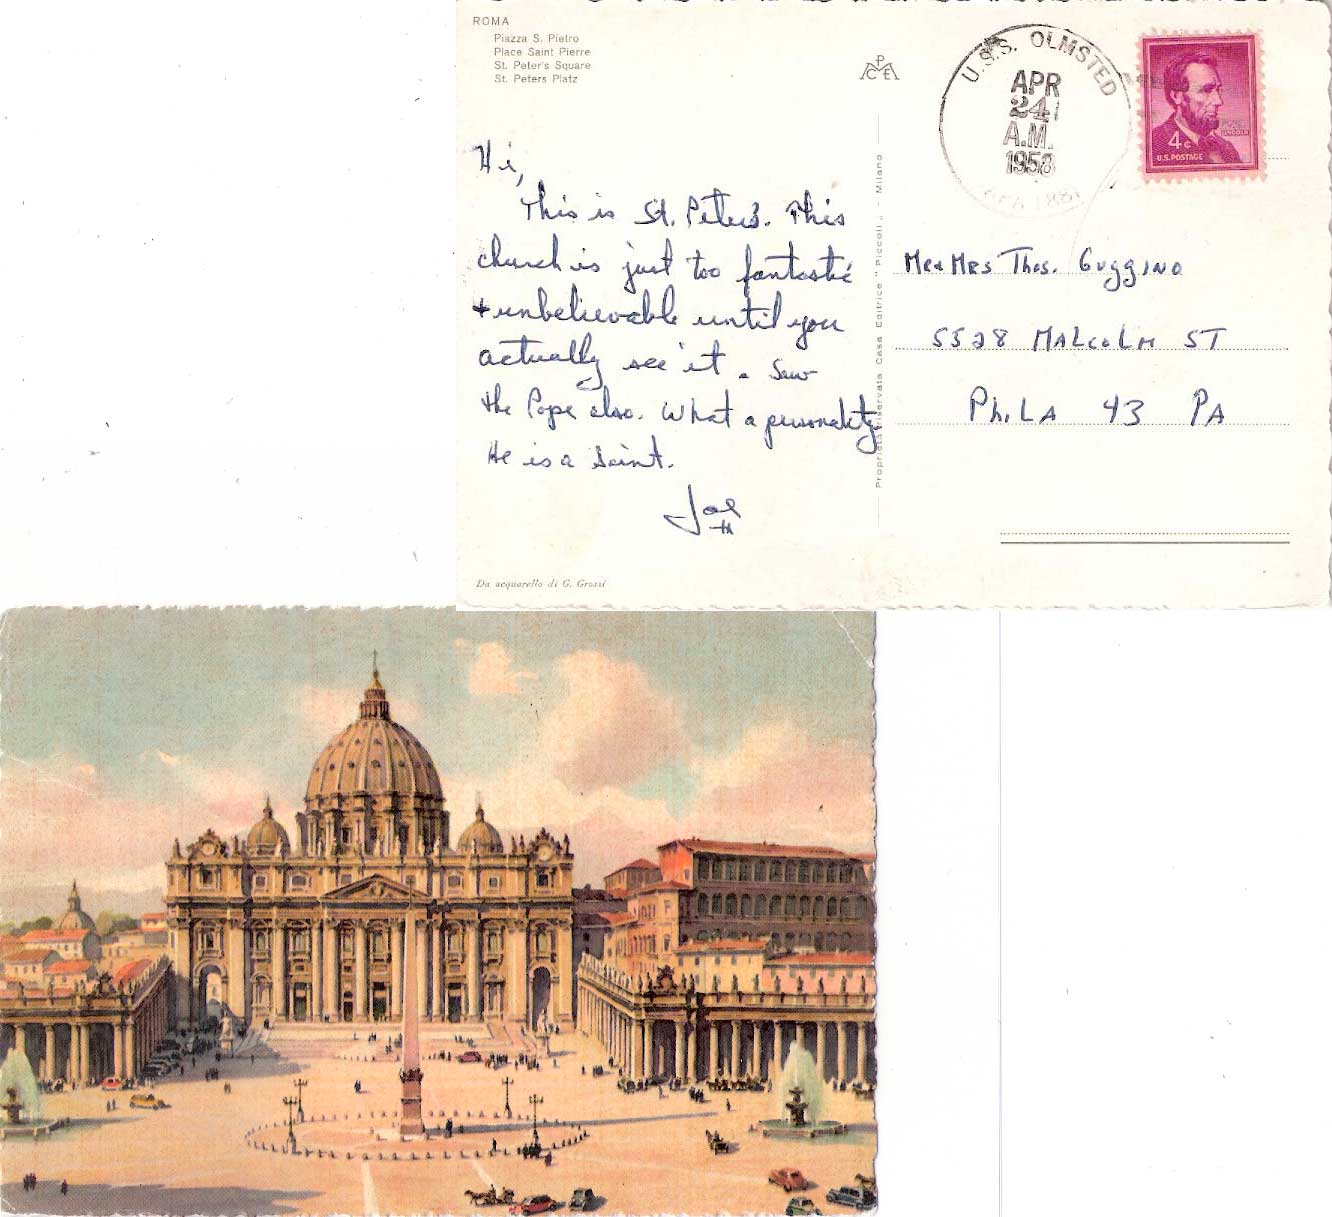 ROMA
Piazza S. Pietro
Place Saint Pierre
St. Peter's Square
St. Peters Platz
PCE
U.S.S. OLMSTED
APR
24
A.M.
1958
4¢
LINCOLN
U.S. POSTAGE
Hi,
This is St. Peters. This
church is just too fantastic
+ unbelievable until you
actually see it. Saw
the Pope also. What a personality
He is a Saint.
Joe
Mr + Mrs Thos. Guggino
5528 MALCOLM ST
PhiLA 43 PA
Proprietà riservata Casa Editrice "Piccoli" - Milano
Da acquarello di G. Grossi